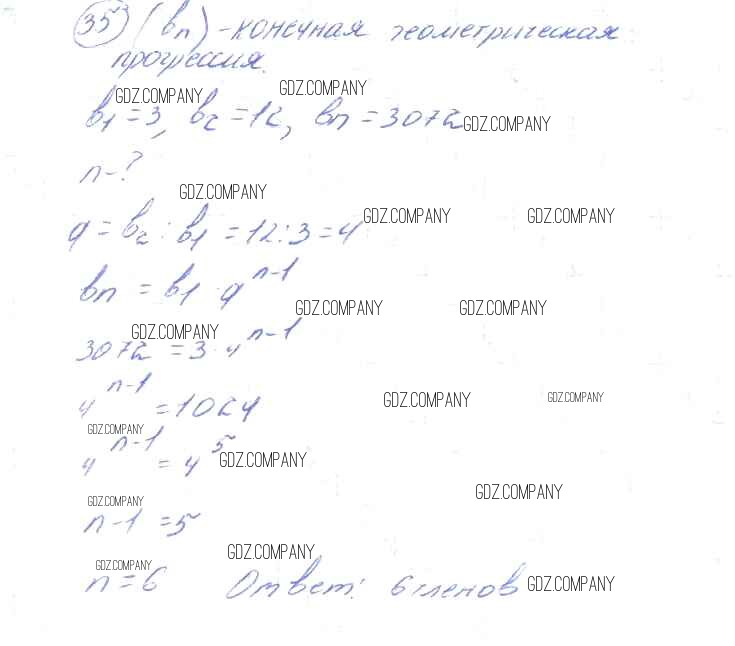 35 (bn) - конечная геометрическая
прогрессия.
GDZ.COMPANY GDZ.COMPANY
b1 = 3, b2 = 12, bn = 3072 GDZ.COMPANY
n - ?
GDZ.COMPANY
GDZ.COMPANY GDZ.COMPANY
q = b2 : b1 = 12 : 3 = 4
bn = b1 · q^n-1
GDZ.COMPANY GDZ.COMPANY
GDZ.COMPANY
3072 = 3 · 4^n-1
4^n-1 = 1024
GDZ.COMPANY GDZ.COMPANY
GDZ.COMPANY
4^n-1 = 4^5 GDZ.COMPANY
GDZ.COMPANY
GDZ.COMPANY
n - 1 = 5
GDZ.COMPANY
GDZ.COMPANY
n = 6 Ответ: 6 членов GDZ.COMPANY